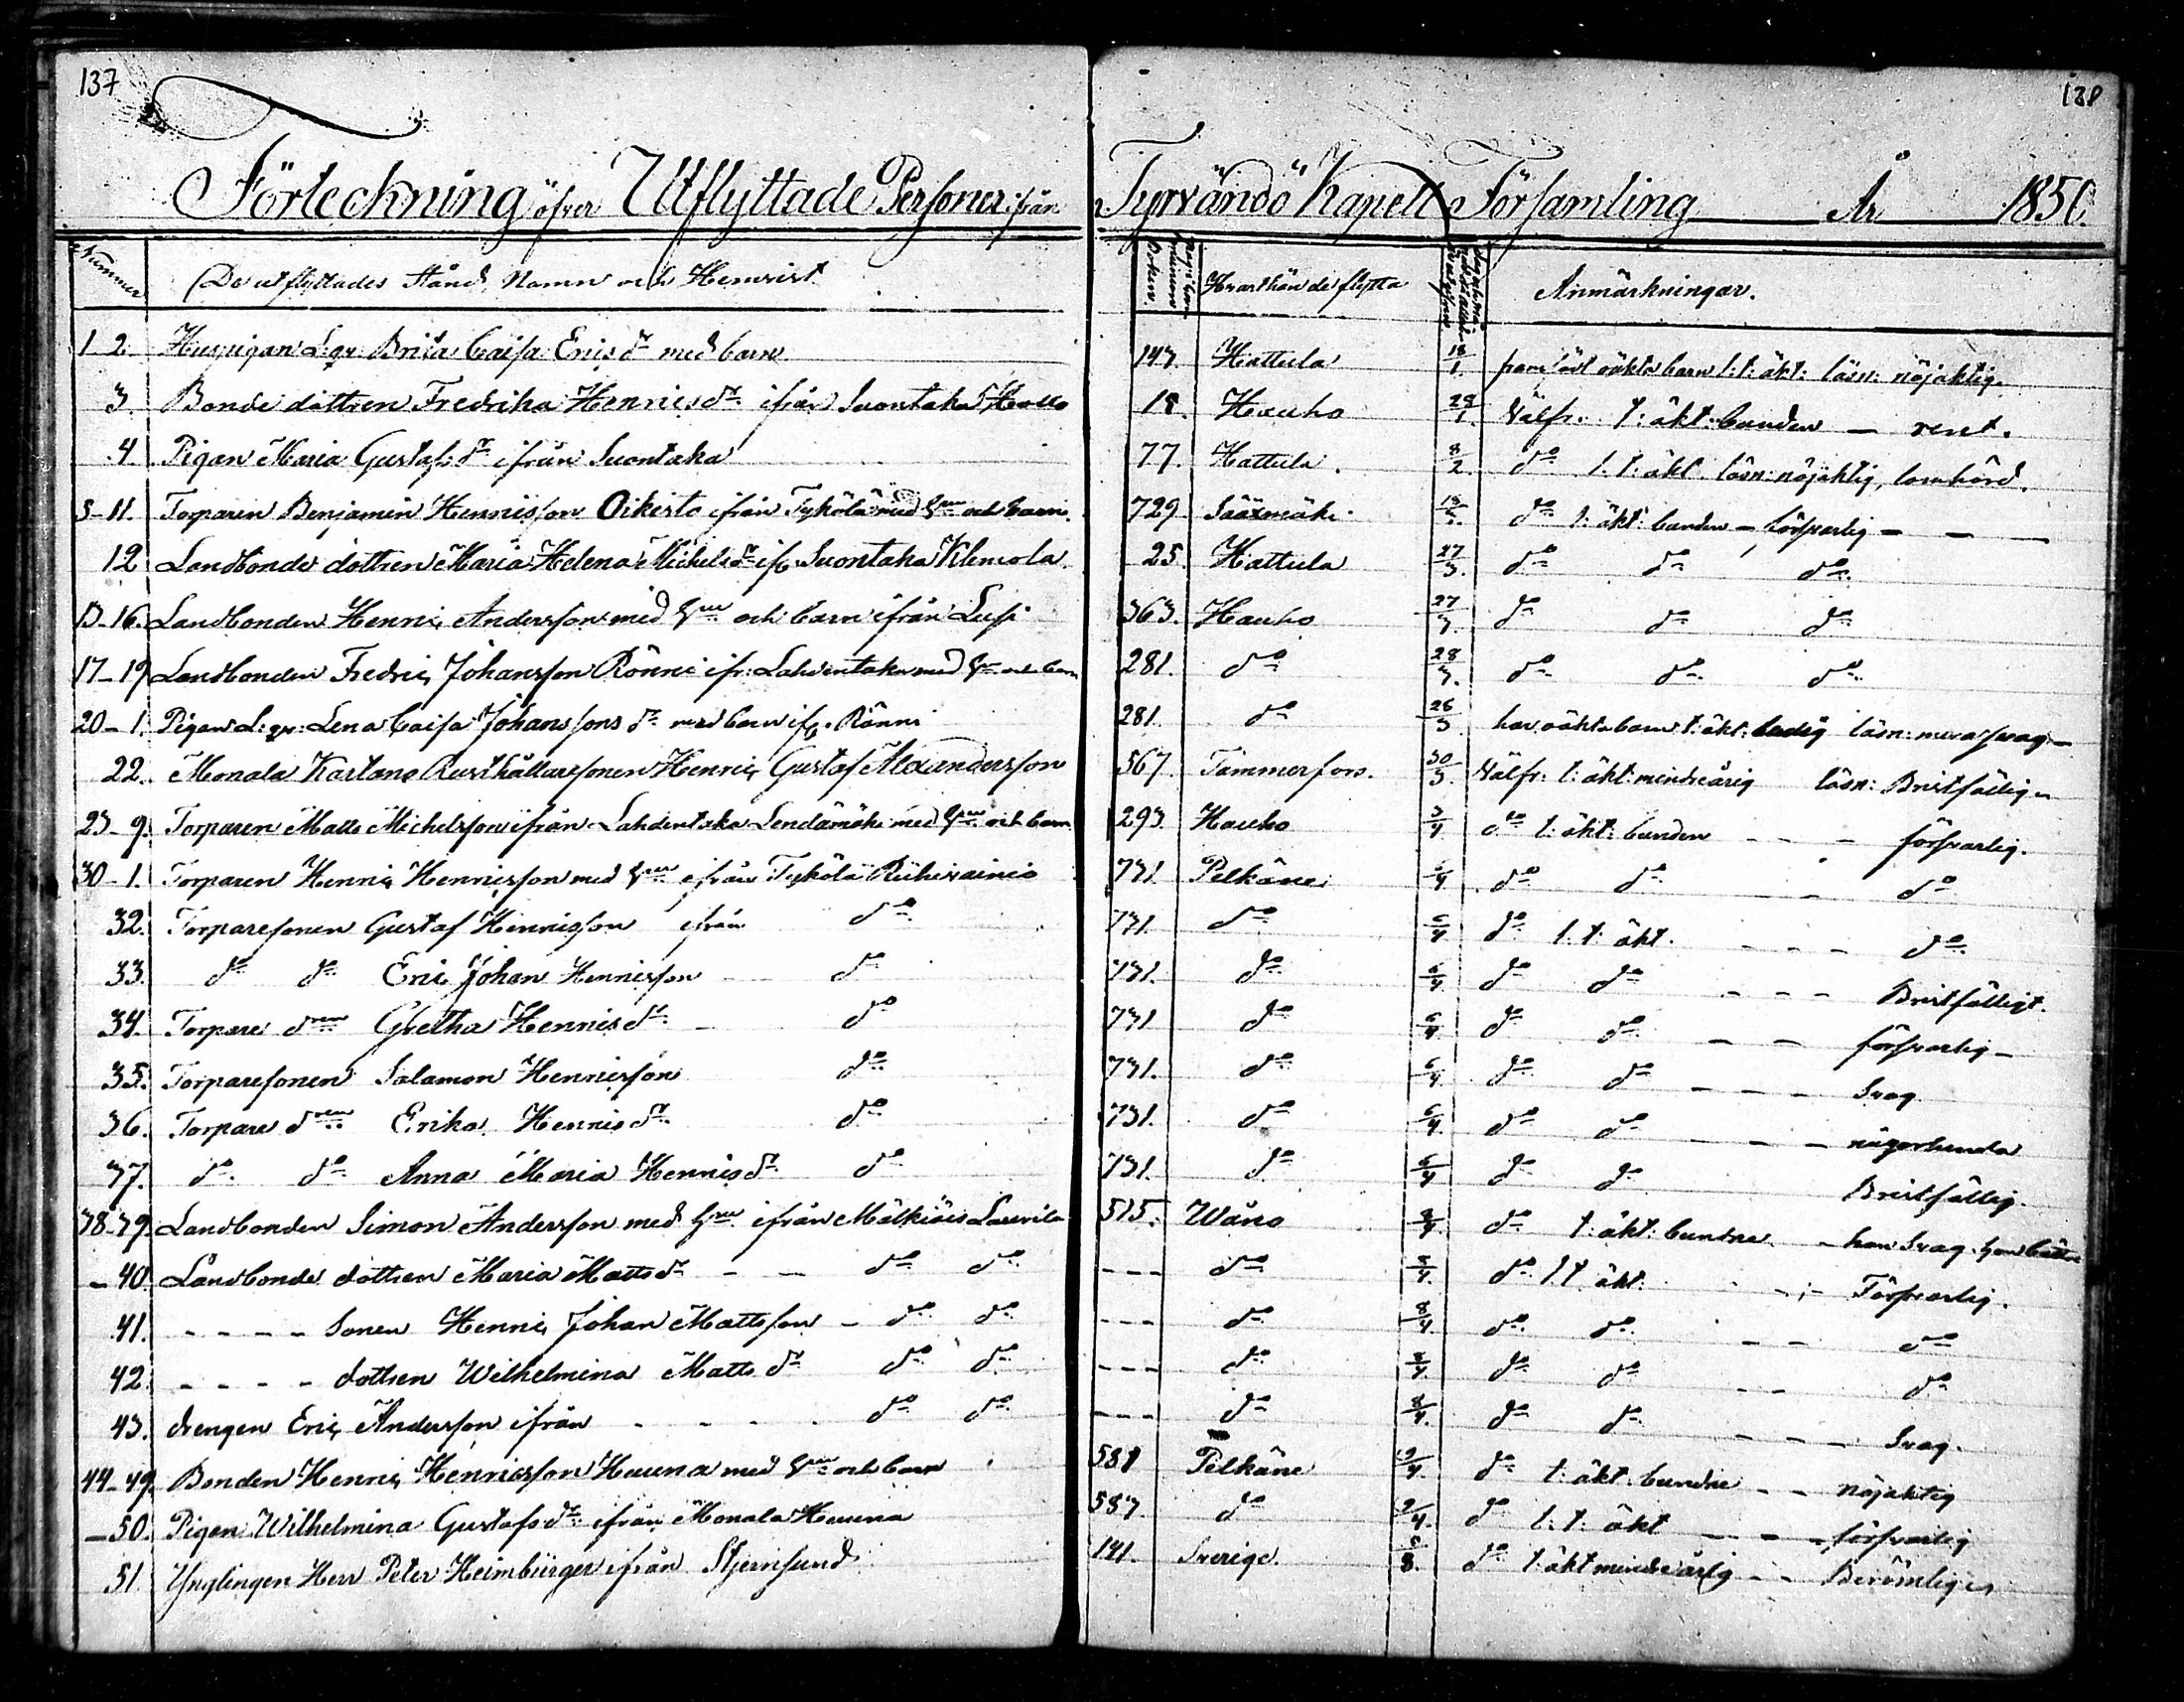 137
138
Förteckning öfver Utflyttade Personer ifrån Tyrvändö Kapell Församling År 1850.
Nummer De utflyttades Stånd, Namn och Hemvist. Pagin i Com. Boken. Hvarthän de flytta Anmärkningar.
1-2. Huspigan L:qv: Brita Caisa Erics dr med barn 143. Hattula 18/1. oäkta barn l: t: äkt: läsn: nöjaktig.
3. Bonde dottren Fredrika Henrics dr ifrån Suontaka 18. Hauho 28/1. Välfr. t: äkt: bunden — rent.
4. Pigan Maria Gustafs dr ifrån Suontaka 77. Hattula. 8/2. do l: t: äkt. läsn: nöjaktig, lomhörd.
5-11. Torparen Benjamin Henricsson Oikesto ifrån Tykölä med hru och barn. 729 Sääxmäki do t: äkt: bunden — försvarlig —
12 Landbonde dottren Maria Helena Michels dr ifr. Suontaka Klemola. 25. Hattula 27/3. do do do
13-16. Landbonden Henric Andersson med hru och barn ifrån Lusi 363. Hauho 27/3. do do do
17-19 Landbonden Fredric Johansson Rönni ifr: Lahdentaka med hru och barn 281. do 28/3. do do do
20-1. Pigan L: qv: Lena Caisa Johanssons dr med barn ifr. Rönni 281. do 26/3 har oäkta barn t: äkt: ledig läsn: mera svag —
22. Monala Kartano Rusthållaresonen Henric Gustaf Alexandersson 567. Tammerfors. 30/3. Välfr: t: äkt: minderårig läsn: Bristfällig
23-9. Torparen Matts Michelsson ifrån Lahdentaka Lendämäki med hru och barn 293. Hauho 3/4. do t: äkt: bunden - - försvarlig.
30-1. Torparen Henric Henricsson med hru ifrån Tykölä Riihivainio 731. Pelkäne 6/4 do do - do
32. Torparesonen Gustaf Henricsson ifrån do 731. do 6/4 do l: t: äkt. - - - do
33. do do Eric Johan Henricsson — do 731. do 6/4. do do - - - Bristfälligt.
34. Torpare dren Gretha Henrics dr — do 731 do 6/4. do do — — försvarlig —
35. Torparesonen Salamon Henricsson do 731. do 6/4. do do - - - Svag
36. Torpare dren Erika Henrics dr do 731. do 6/4. do do - - - någorlunda
37. do do Anna Maria Henrics dr do 731. do 6/4 do do Bristfällig.
38-39. Landbonden Simon Andersson med hru ifrån Mälkiäis Laurila 515. Wåno 8/4. do t: äkt: bundne - han svag. hon bättre
- 40. Landbonde dottren Maria Matts dr - — do do - - - do 8/4. do l: t: äkt: - - Försvarlig.
41. - - - - Sonen Henric Johan Mattsson - do do - - - do 8/4. do do — — do
42. - - - - dottren Wilhelmina Matts dr do do - - - do 8/4 do do - - do
43. drengen Eric Andersson ifrån - - - - do do - - - do 8/4. do do - - - Svag.
44-49. Bonden Henric Henricsson Heuna med hru och barn 581 Pelkäne do t: äkt: bundne - - nöjaktig
- 50. Pigan Wilhelmina Gustafs dr ifrån Monala Heuna 587. do 2/4. do l: t: äkt - - - försvarlig
51. Ynglingen Herr Peter Heimbürger ifrån Stjernsund 141. Sverige. do t: äkt minderårig - - Berömlig